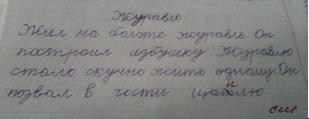 Журавль.
Жил на болоте журавль. Он
построил избушку Журавлю
стало скучно жить одному. Он
позвал в гости цаплю
см